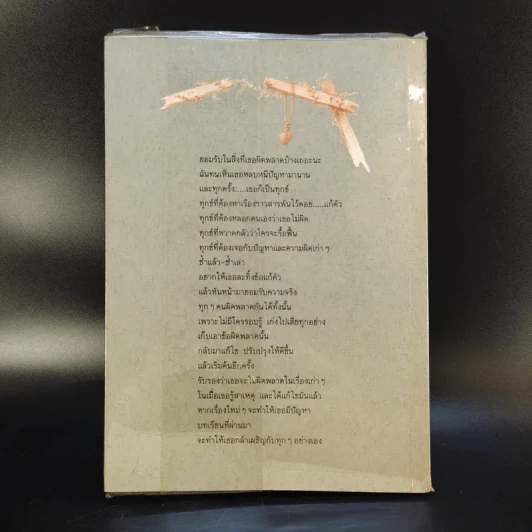 ยอมรับในสิ่งที่เธอผิดพลาดบ้างเถอะนะ
ฉันทนเห็นเธอหลบหนีปัญหามานาน
และทุกครั้ง.....เธอก็เป็นทุกข์
ทุกข์ที่ต้องหาเรื่องราวสารพันไว้คอย.....แก้ตัว
ทุกข์ที่ต้องหลอกตนเองว่าเธอไม่ผิด
ทุกข์ที่หวาดกลัวว่าใครจะรื้อฟื้น
ทุกข์ที่ต้องเจอกับปัญหาและความผิดเก่า ๆ
ซ้ำแล้ว-ซ้ำเล่า
อยากให้เธอละทิ้งข้อแก้ตัว
แล้วหันหน้ามายอมรับความจริง
ทุก ๆ คนผิดพลาดกันได้ทั้งนั้น
เพราะไม่มีใครรอบรู้ เก่งไปเสียทุกอย่าง
เก็บเอาข้อผิดพลาดนั้น
กลับมาแก้ไข ปรับปรุงให้ดีขึ้น
แล้วเริ่มต้นอีกครั้ง
รับรองว่าเธอจะไม่ผิดพลาดในเรื่องเก่า ๆ
ในเมื่อเธอรู้สาเหตุ และได้แก้ไขมันแล้ว
หากเรื่องใหม่ ๆ จะทำให้เธอมีปัญหา
บทเรียนที่ผ่านมา
จะทำให้เธอกล้าเผชิญกับทุก ๆ อย่างเอง